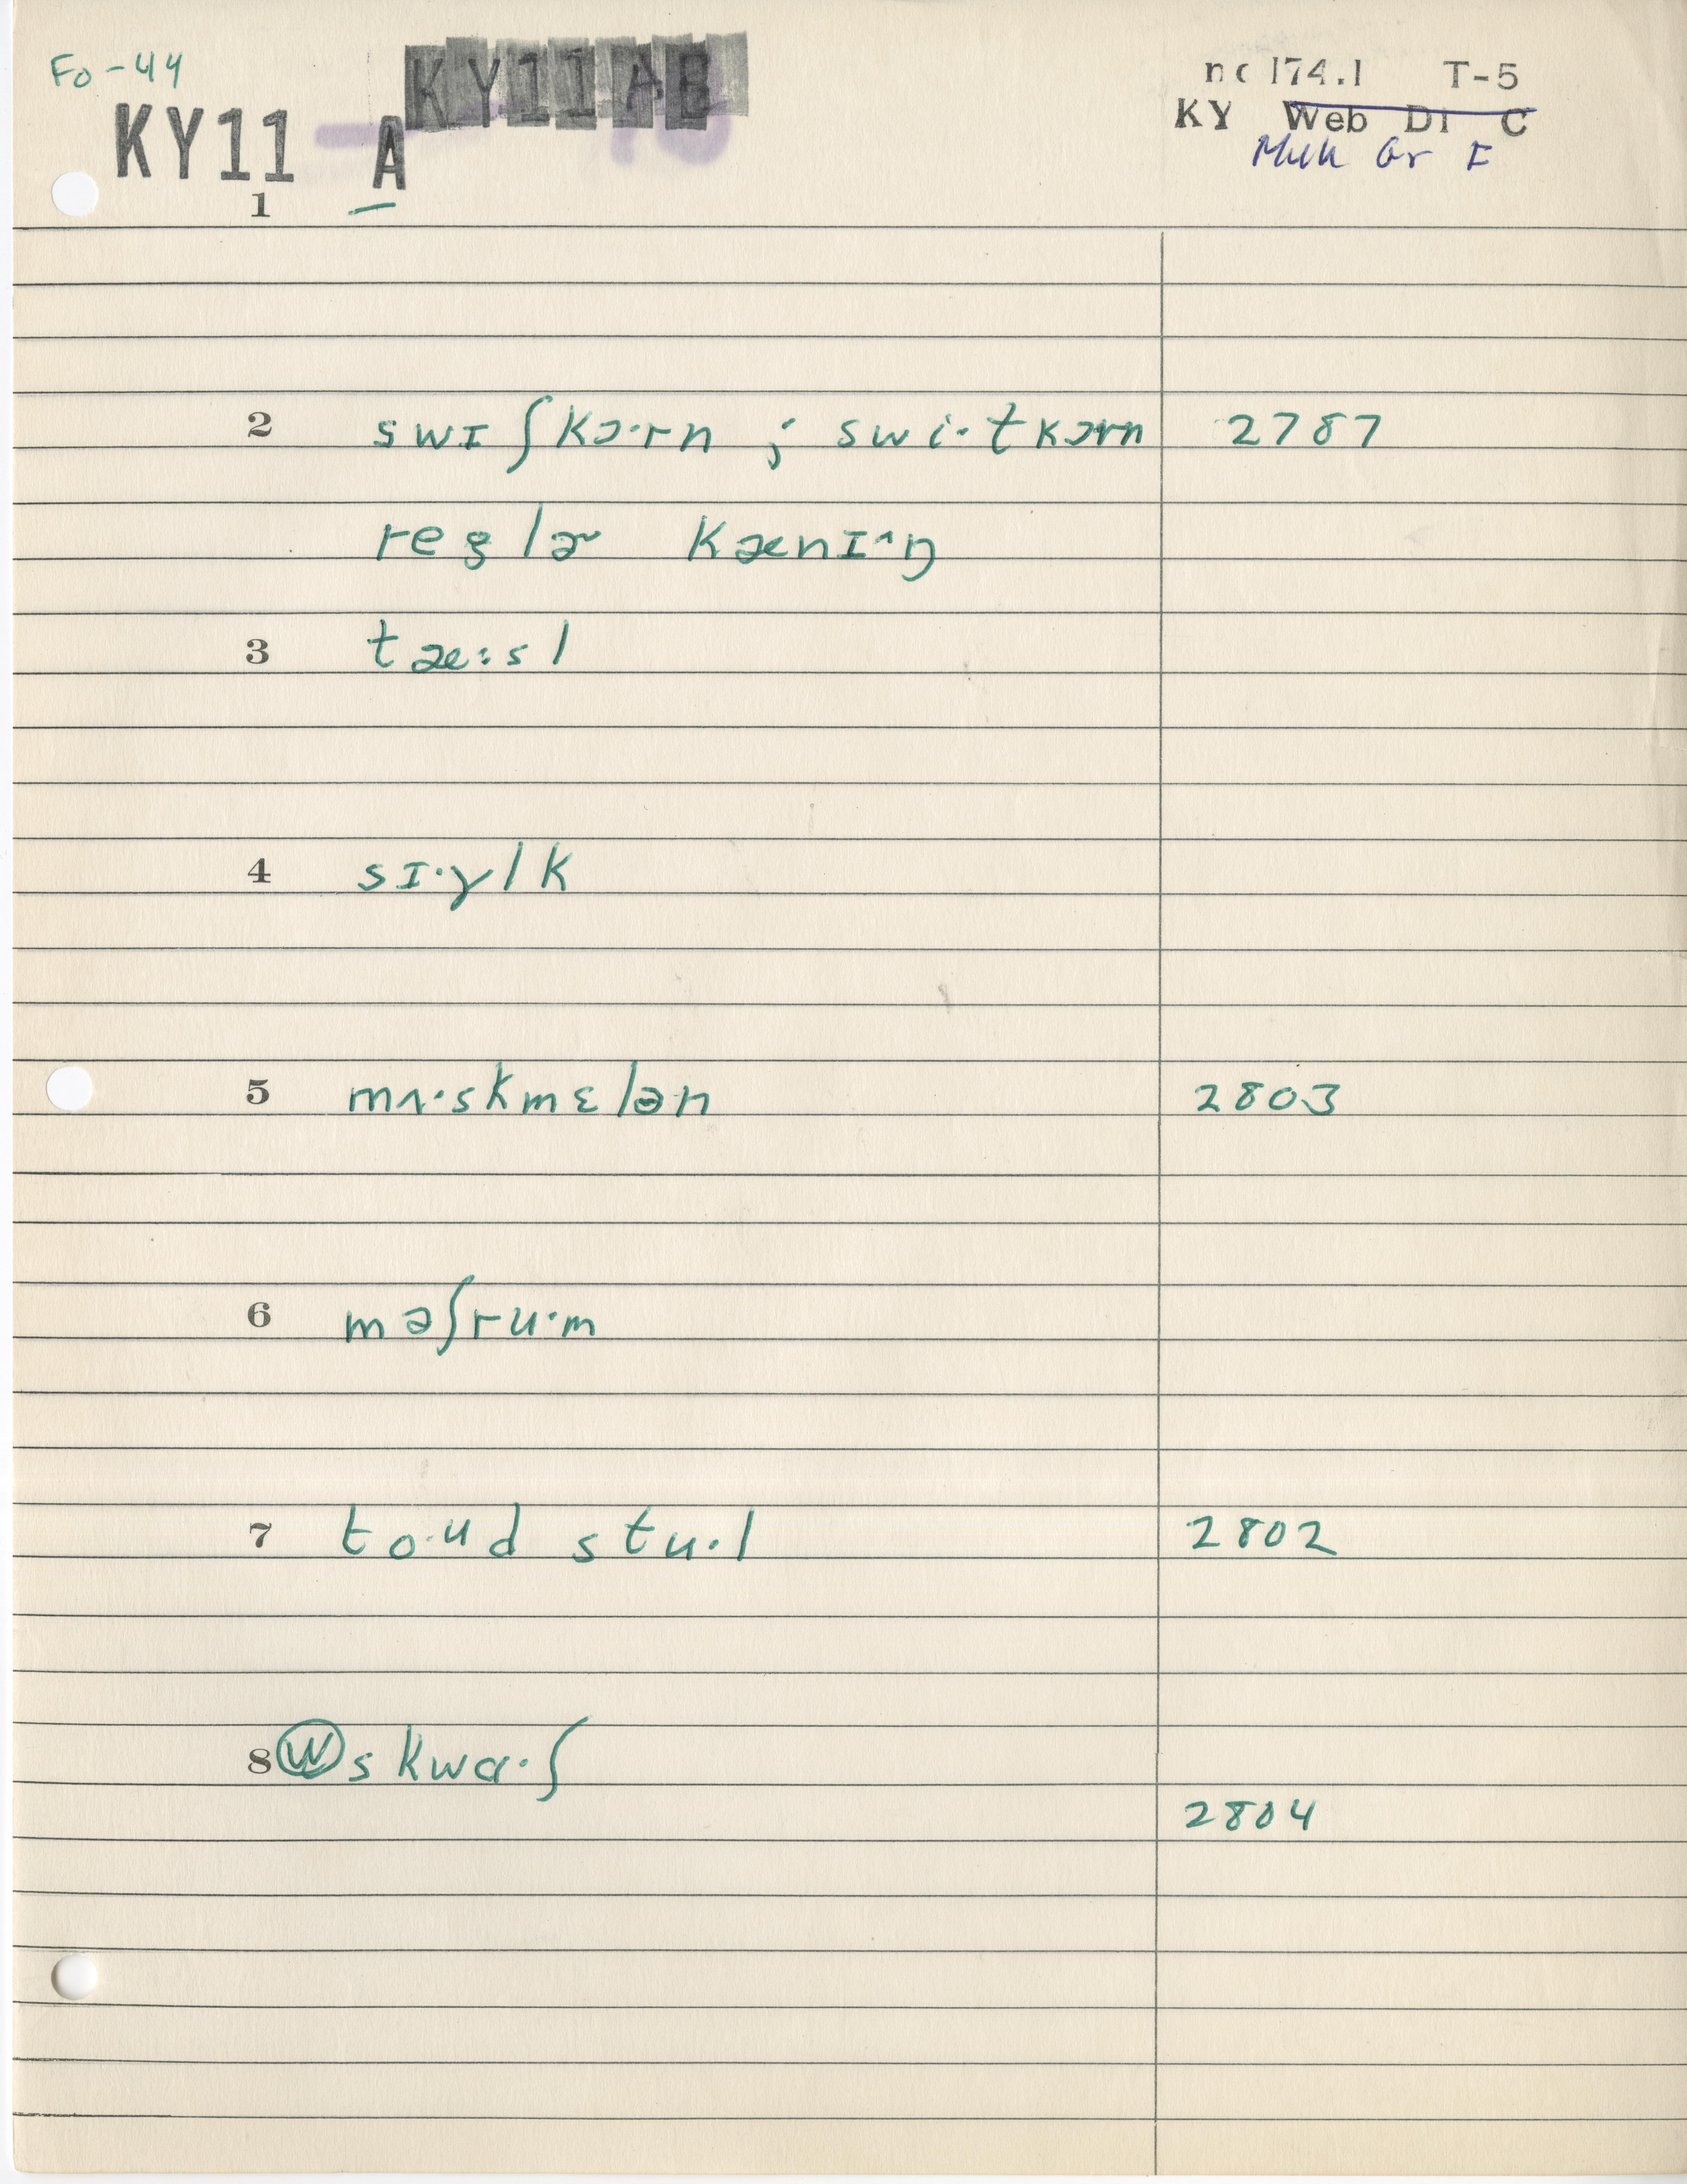 Fo-44
KY11 A
KY11AB
nc 174.1 T-5
KY Web Di C
Muh Gr F
1
2 swɪʃkɔ·rn ; swi·tkɔrn 2787
reglɚ kænɪ^ŋ
3 tæ:sl
4 sɪ·ɣlk
5 mʌ·skmɛlən 2803
6 məʃru·m
7 to·ud stu·l 2802
8 W skwɑ·ʃ
2804